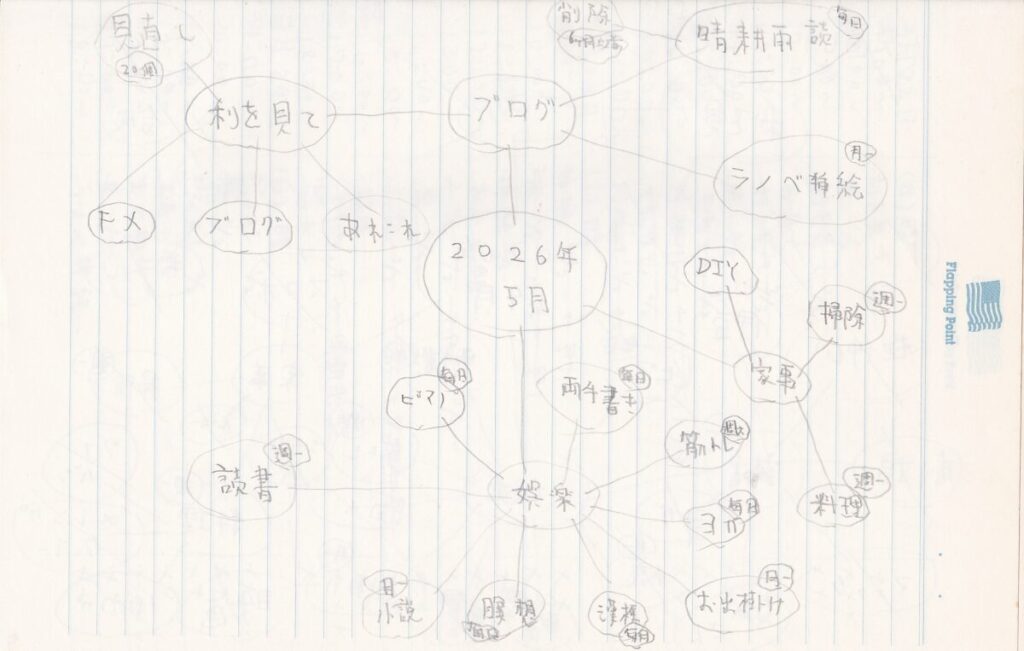 見直し
20個
削除
晴耕雨談
毎日
利を見て
ブログ
ラノベ挿絵
月一
ドメ
ブログ
あれこれ
2026年
5月
DIY
掃除
週一
家事
ピアノ
毎日
両手書き
毎日
筋トレ
読書
週一
娯楽
ヨガ
毎日
料理
週一
月一
小説
瞑想
毎日
毎日
お出掛け
月一
Flapping Point